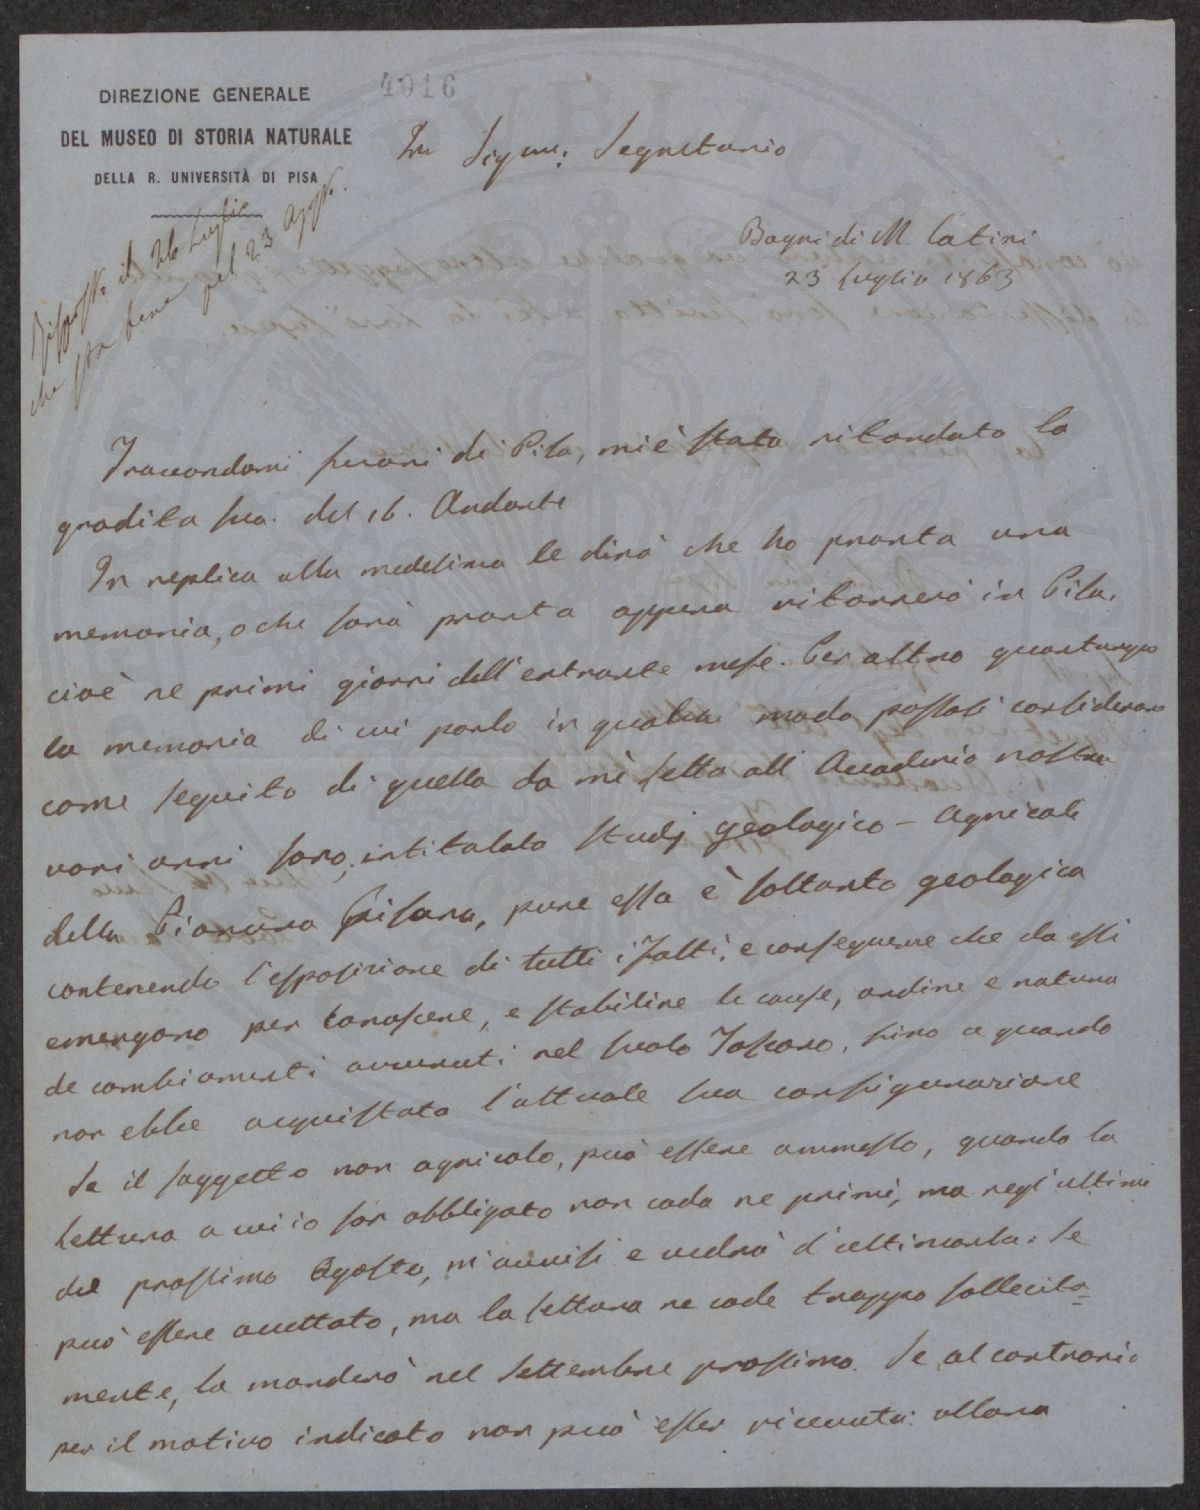 DIREZIONE GENERALE
DEL MUSEO DI STORIA NATURALE
DELLA R. UNIVERSITÀ DI PISA
4016
Signor Segretario
Risposto il 26 Luglio
che sta bene pel 23 Agosto.
Bagni di M. Catini
23 Luglio 1863
Trovandomi fuori di Pisa, mi è stata ritardata la
gradita sua. del 16. Andante
In replica alla medesima le dirò che ho pronta una
memoria, o che sarà pronta appena ritornerò in Pisa,
cioè ne primi giorni dell'entrante mese. Per altro quantunque
la memoria di cui parlo in qualche modo possasi considerare
come seguito di quella da mè letta all' Accademia nostra
vari anni sono, intitolata Studj geologico - Agricoli
della Pianura Pisana, pure essa è soltanto geologica
contenendo l'esposizione di tutti i fatti, e conseguenze che da essi
emergono per conoscere, e stabilire le cause, ordine e natura
de cambiamenti avvenuti nel suolo Toscano, fino a quando
non ebbe acquistata l'attuale sua configurazione
Se il soggetto non agricolo, può essere ammesso, quando la
lettura a cui io son obbligato non cada ne primi, ma negl'ultimi
del prossimo Agosto, m'avvisi e vedrò d'ultimarla. Se
può essere accettato, ma la lettura ne cade troppo sollecita=
mente, la manderò nel Settembre prossimo. Se al contrario
per il motivo indicato non può esser ricevuta: allora